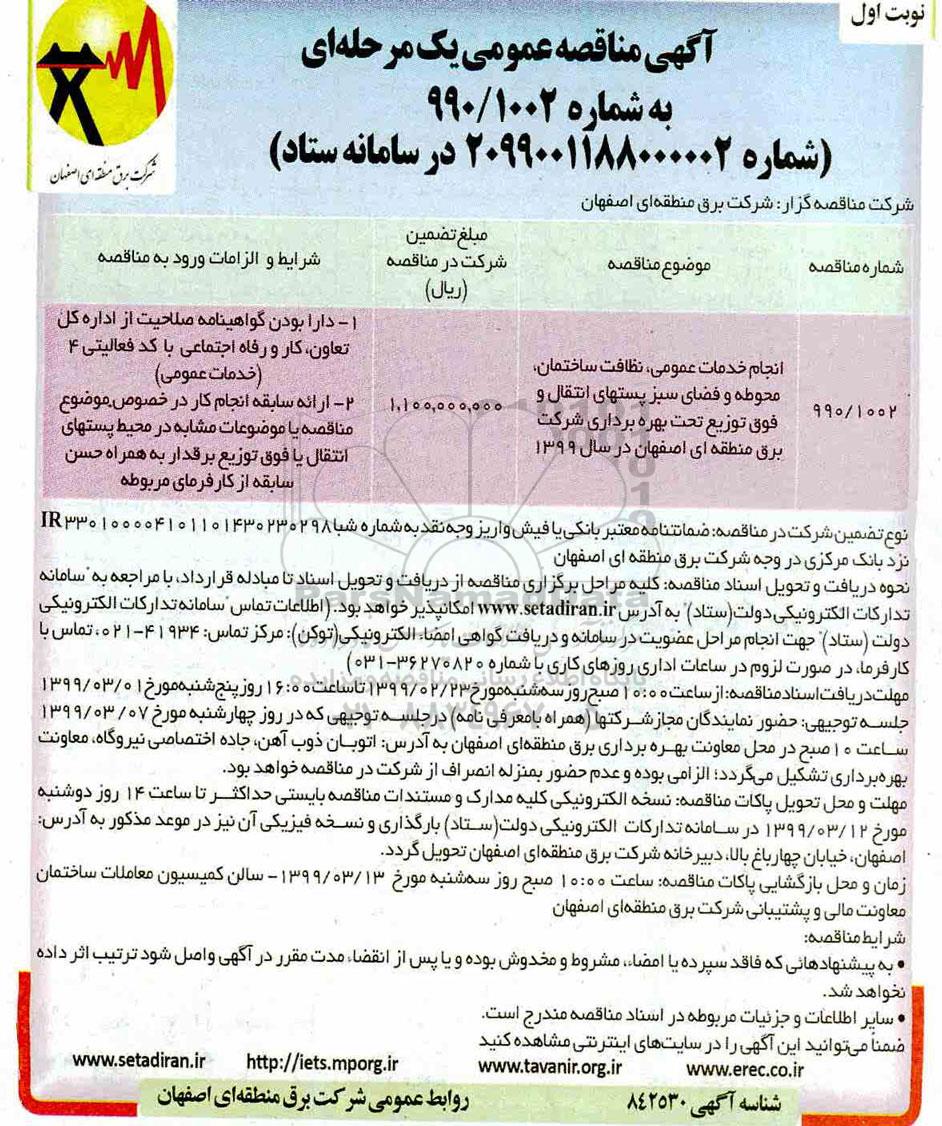 نوبت اول
آگهی مناقصه عمومی یک مرحله‌ای
به شماره ۹۹۰/۱۰۰۲
(شماره ۲۰۹۹۰۰۱۱۸۸۰۰۰۰۰۲ در سامانه ستاد)
شرکت برق منطقه‌ای اصفهان
شرکت مناقصه گزار: شرکت برق منطقه‌ای اصفهان
شماره مناقصه
موضوع مناقصه
مبلغ تضمین
شرکت در مناقصه
(ریال)
شرایط و الزامات ورود به مناقصه
۹۹۰/۱۰۰۲
انجام خدمات عمومی، نظافت ساختمان،
محوطه و فضای سبز پستهای انتقال و
فوق توزیع تحت بهره برداری شرکت
برق منطقه ای اصفهان در سال ۱۳۹۹
۱,۱۰۰,۰۰۰,۰۰۰
۱- دارا بودن گواهینامه صلاحیت از اداره کل
تعاون، کار و رفاه اجتماعی با کد فعالیتی ۴
(خدمات عمومی)
۲- ارائه سابقه انجام کار در خصوص موضوع
مناقصه یا موضوعات مشابه در محیط پستهای
انتقال یا فوق توزیع برقدار به همراه حسن
سابقه از کارفرمای مربوطه
نوع تضمین شرکت در مناقصه: ضمانتنامه معتبر بانکی یا فیش واریز وجه نقد به شماره شبا IR۳۳۰۱۰۰۰۰۴۱۰۱۱۰۱۴۳۰۲۳۰۲۹۸
نزد بانک مرکزی در وجه شرکت برق منطقه ای اصفهان
نحوه دریافت و تحویل اسناد مناقصه: کلیه مراحل برگزاری مناقصه از دریافت و تحویل اسناد تا مبادله قرارداد، با مراجعه به "سامانه
تدارکات الکترونیکی دولت(ستاد)" به آدرس www.setadiran.ir امکانپذیر خواهد بود. (اطلاعات تماس "سامانه تدارکات الکترونیکی
دولت (ستاد)" جهت انجام مراحل عضویت در سامانه و دریافت گواهی امضاء الکترونیکی(توکن): مرکز تماس: ۴۱۹۳۴-۰۲۱، تماس با
کارفرما، در صورت لزوم در ساعات اداری روزهای کاری با شماره ۳۶۲۷۰۸۲۰-۰۳۱)
مهلت دریافت اسناد مناقصه: از ساعت ۱۰:۰۰ صبح روز سه‌شنبه مورخ ۱۳۹۹/۰۲/۲۳ تا ساعت ۱۶:۰۰ روز پنج‌شنبه مورخ ۱۳۹۹/۰۳/۰۱
جلسه توجیهی: حضور نمایندگان مجاز شرکتها (همراه با معرفی نامه) در جلسه توجیهی که در روز چهارشنبه مورخ ۱۳۹۹/۰۳/۰۷
ساعت ۱۰ صبح در محل معاونت بهره برداری برق منطقه‌ای اصفهان به آدرس: اتوبان ذوب آهن، جاده اختصاصی نیروگاه، معاونت
بهره‌برداری تشکیل می‌گردد؛ الزامی بوده و عدم حضور بمنزله انصراف از شرکت در مناقصه خواهد بود.
مهلت و محل تحویل پاکات مناقصه: نسخه الکترونیکی کلیه مدارک و مستندات مناقصه بایستی حداکثر تا ساعت ۱۴ روز دوشنبه
مورخ ۱۳۹۹/۰۳/۱۲ در سامانه تدارکات الکترونیکی دولت(ستاد) بارگذاری و نسخه فیزیکی آن نیز در موعد مذکور به آدرس:
اصفهان، خیابان چهارباغ بالا، دبیرخانه شرکت برق منطقه‌ای اصفهان تحویل گردد.
زمان و محل بازگشایی پاکات مناقصه: ساعت ۱۰:۰۰ صبح روز سه‌شنبه مورخ ۱۳۹۹/۰۳/۱۳- سالن کمیسیون معاملات ساختمان
معاونت مالی و پشتیبانی شرکت برق منطقه‌ای اصفهان
شرایط مناقصه:
• به پیشنهادهائی که فاقد سپرده یا امضاء، مشروط و مخدوش بوده و یا پس از انقضاء مدت مقرر در آگهی واصل شود ترتیب اثر داده
نخواهد شد.
• سایر اطلاعات و جزئیات مربوطه در اسناد مناقصه مندرج است.
ضمناً می‌توانید این آگهی را در سایت‌های اینترنتی مشاهده کنید
www.setadiran.ir http://iets.mporg.ir www.tavanir.org.ir www.erec.co.ir
شناسه آگهی ۸۴۲۵۳۰
روابط عمومی شرکت برق منطقه‌ای اصفهان